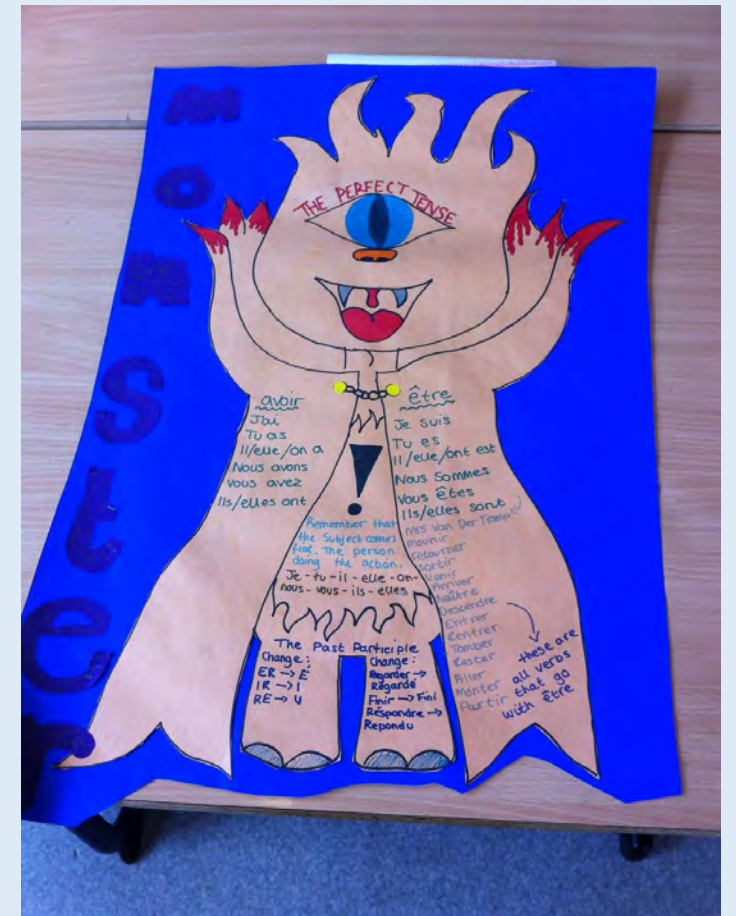 monster
THE PERFECT TENSE
avoir
J'ai
Tu as
Il/elle/on a
Nous avons
Vous avez
Ils/elles ont
être
Je suis
Tu es
Il/elle/ont est
Nous sommes
Vous êtes
Ils/elles sont
!
Remember that
the Subject comes
first. The person
doing the action.
Je-tu-il-elle-on-
nous-vous-ils-elles
Mrs Van Der Tramp
mounir
retourner
sortir
Venir
Arriver
Naître
Descendre
Entrer
Rentrer
Tomber
Rester
Aller
Monter
Partir
these are
all verbs
that go
with être
The Past Participle
Change:
ER → É
IR → I
RE → U
Change:
Regarder →
Régardé
Finir → Fini
Réspondre →
Repondu